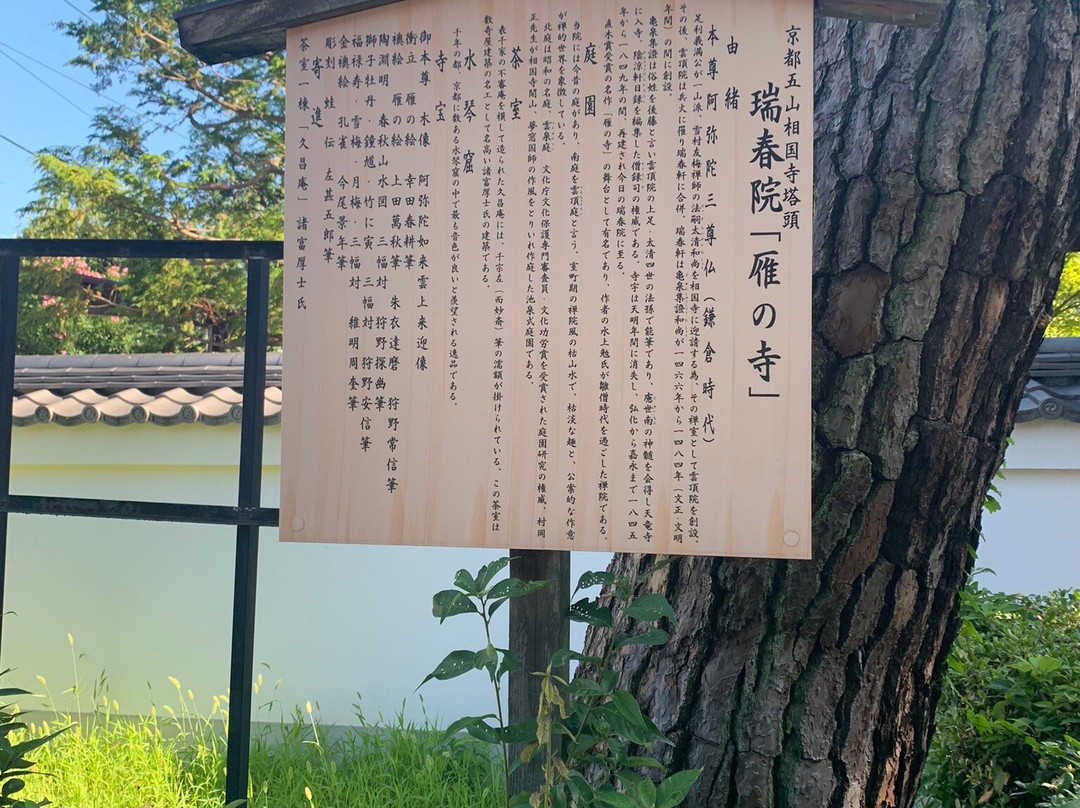 京都五山相国寺塔頭
瑞春院「雁の寺」
由緒
本尊阿弥陀三尊仏（鎌倉時代）
足利義満公が一山派、雪村友梅禅師の法嗣太清和尚を相国寺に迎請する為、その禅室として雲頂院を創設。
その後、雲頂院は兵火に罹り瑞春軒に合併、瑞春軒は亀泉集證和尚が一四六六年から一四八四年（文正‐文明
年間）の間に創設。
亀泉集證は俗姓を後藤と言い雲頂院の上足・太清四世の法孫で能筆であり、虞世南の神髄を会得し天竜寺
に入寺、蔭涼軒日録を編集した僧録司の権威である。寺宇は天明年間に消失し、弘化から嘉永まで一八四五
年から一八四九年の間、再建され今日の瑞春院に至る。
直木賞受賞の名作「雁の寺」の舞台として有名であり、作者の水上勉氏が雛僧時代を過ごした禅院である。
庭園
当院には今昔の庭があり、南庭を雲頂庭と言う、室町期の禅院風の枯山水で、枯淡な趣と、公案的な作意
が禅的世界を象徴している。
北庭は昭和の名庭、雲泉庭、文化庁文化保護専門審査員・文化功労賞を受賞された庭園研究の権威、村岡
正先生が相国寺開山、夢窓国師の作風をとりいれ作庭した池泉式庭園である。
茶室
表千家の不審庵を模して造られた久昌庵には、千宗左（而妙斎）筆の濡額が掛けられている。この茶室は
数奇屋建築の名工として名高い諸富厚士氏の建築である。
水琴窟
千年の都、京都に数ある水琴窟の中で最も音色が良いと羨望される逸品である。
寺宝
御本尊 木像 阿弥陀如来雲上来迎像
衝立 雁の絵 幸田春耕筆
襖絵 雁の絵 上田萬秋筆 朱衣達磨 狩野常信筆
陶淵明・春秋山水図 三幅対 狩野探幽筆
獅子牡丹・鐘馗・竹に寅 三幅対 狩野安信筆
福禄寿・雪梅・月梅・三幅対 維明周奎筆
金襖絵 孔雀 今尾景年筆
彫刻 蛙 伝 左甚五郎筆
寄進
茶室一棟「久昌庵」諸富厚士氏